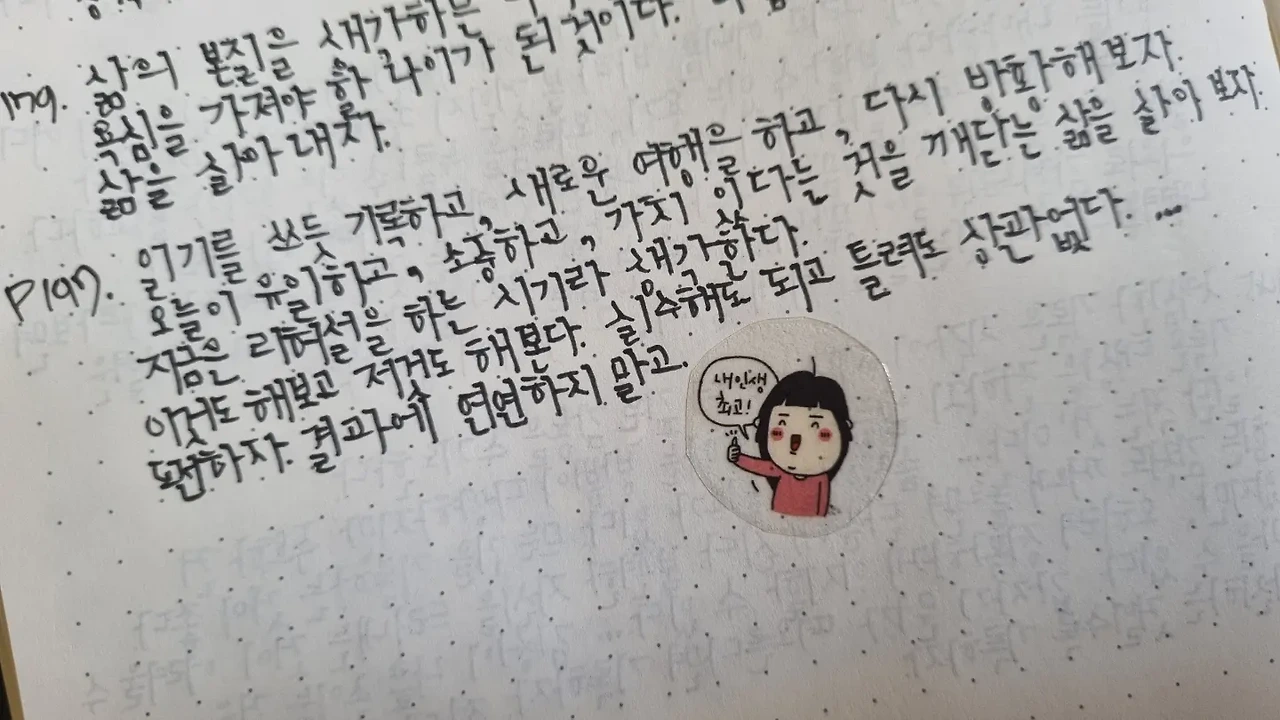 179. 삶의 본질을 생각하는
욕심을 가져야 할 나이가 된 것이다.
삶을 살아 내자.
P197. 일기를 쓰듯 기록하고, 새로운 여행을 하고, 다시 방황해보자.
오늘이 유일하고, 소중하고, 가치 있다는 것을 깨닫는 삶을 살아 보자.
지금은 리허설을 하는 시기라 생각한다.
이것도 해보고 저것도 해본다. 실수해도 되고 틀려도 상관없다. ...
도전하자. 결과에 연연하지 말고.
내인생
최고!